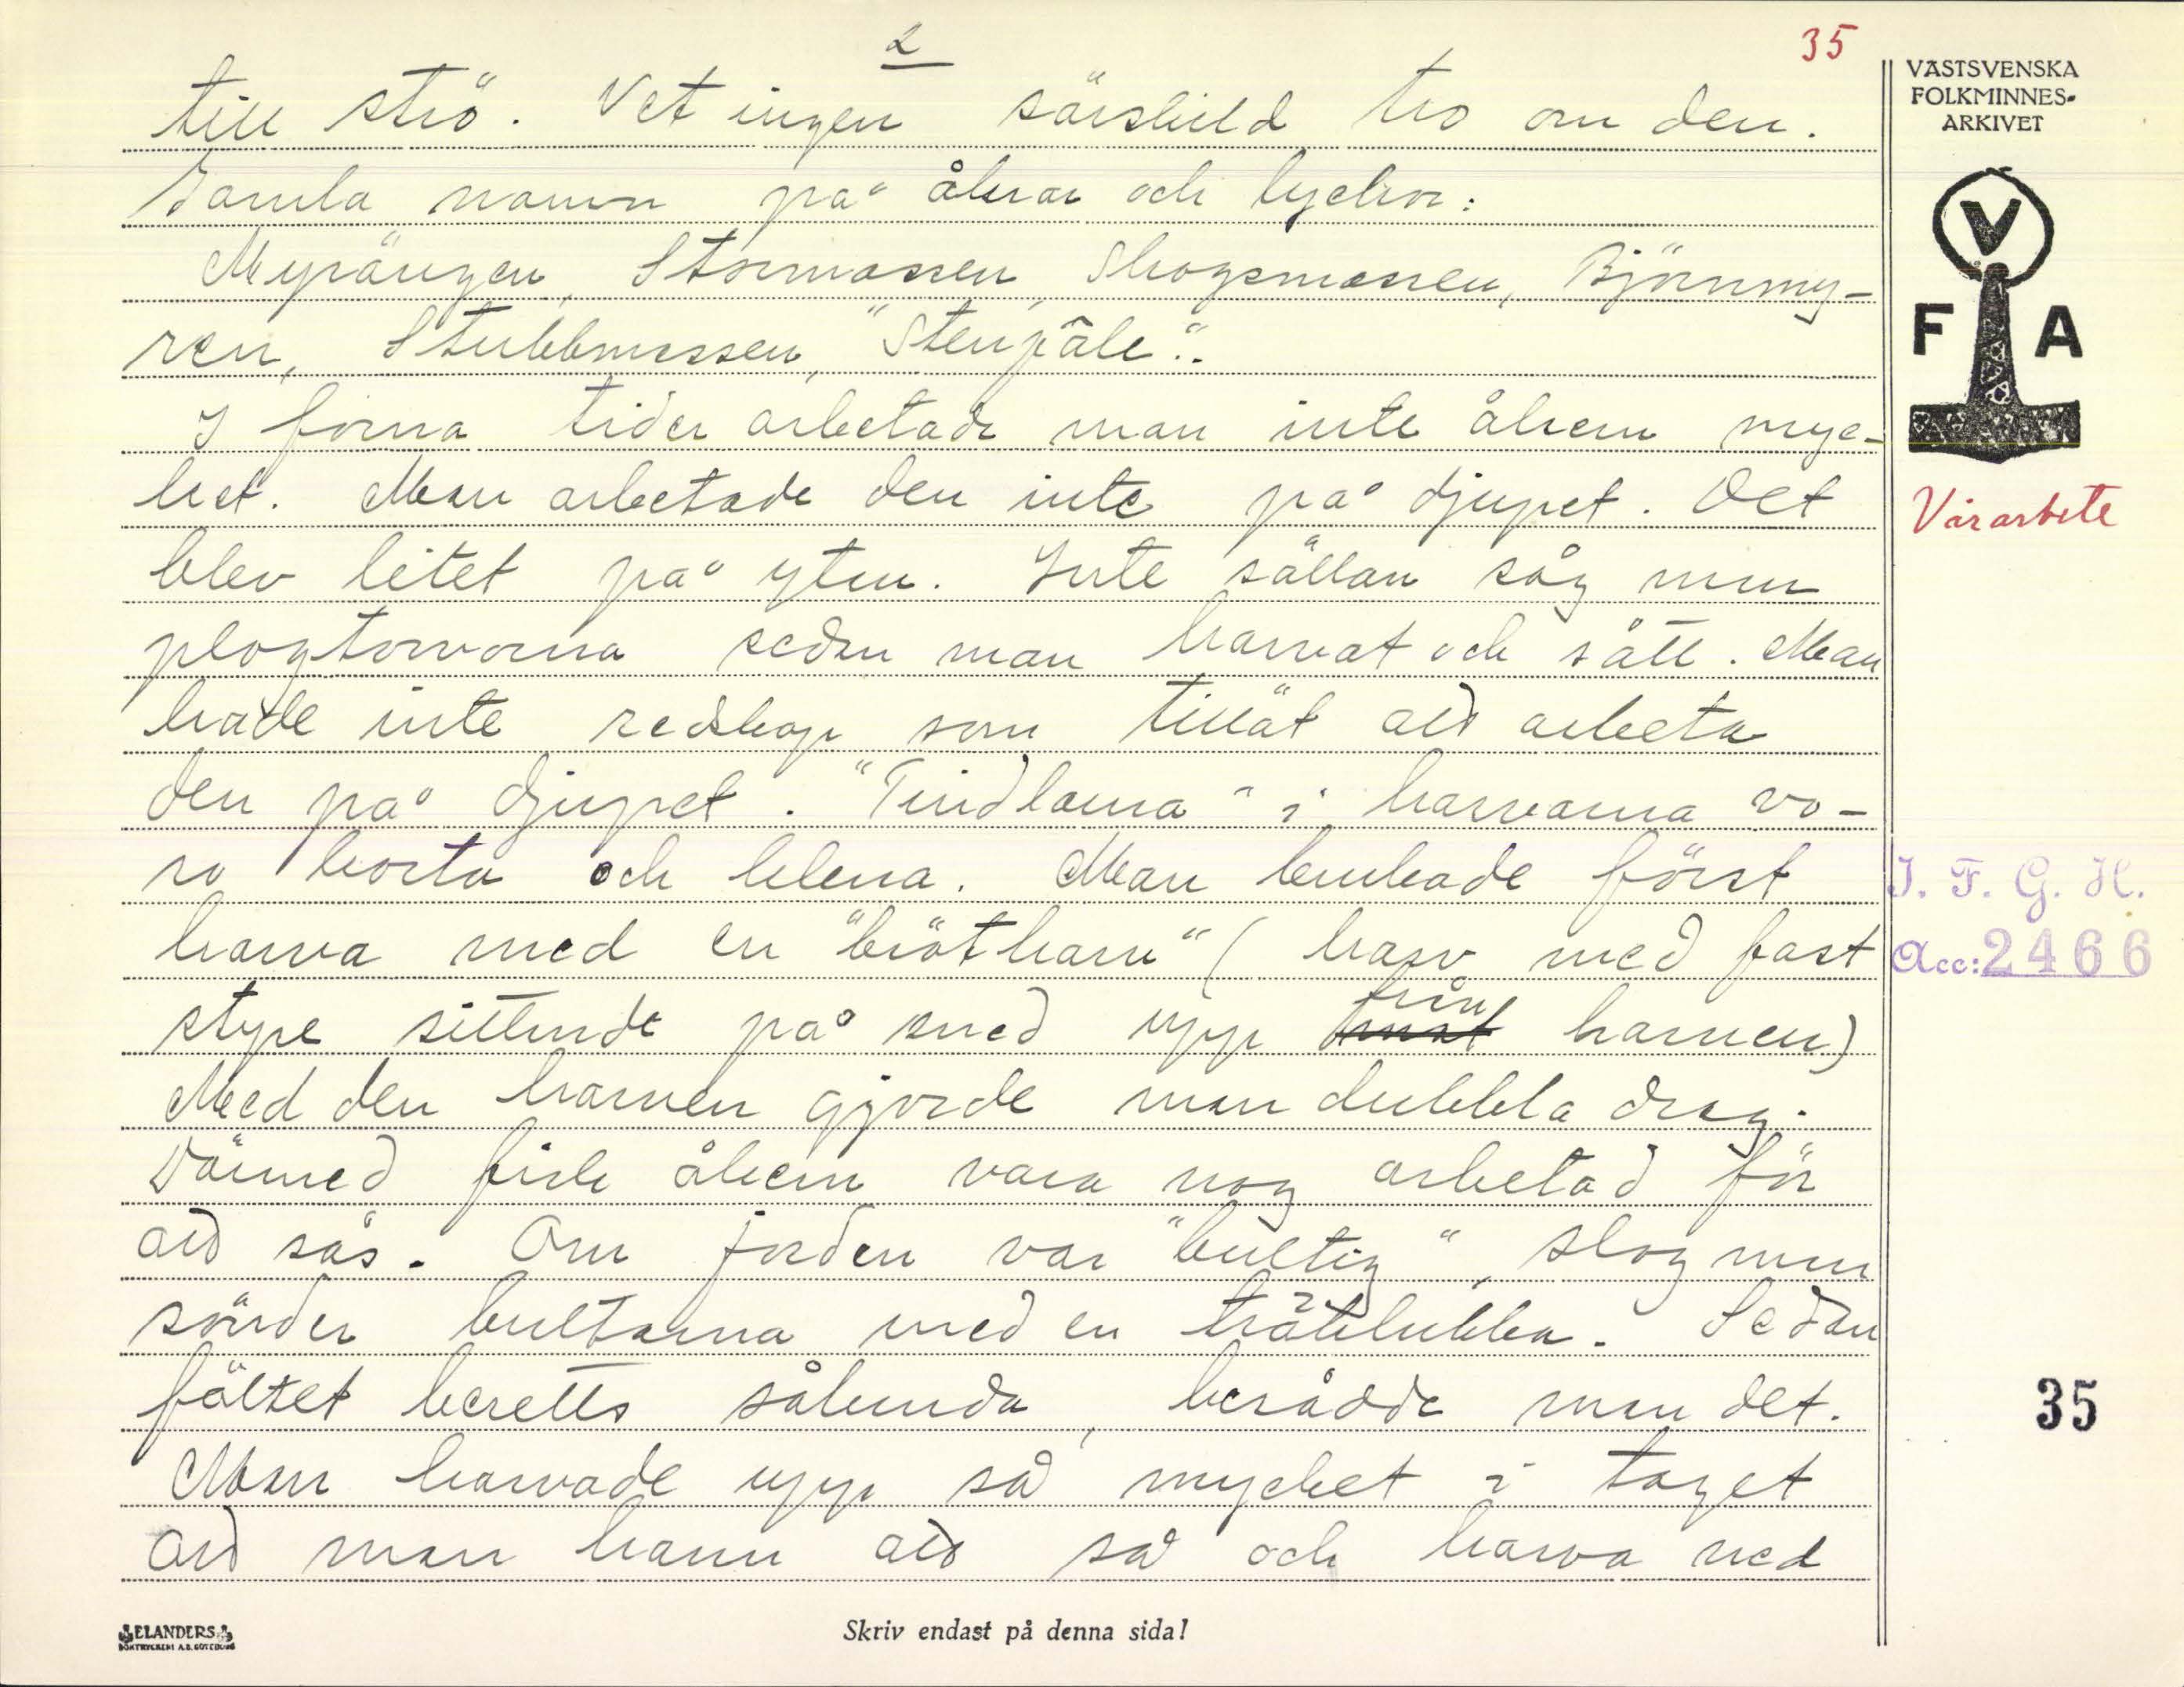 2
35
till strö. Vet ingen särskild tro om den.
Gamla namn på åkrar och lyckor:
Myrängen, Stormossen, Skogsmossen, Björnmy-
ren, Stubbmossen, "Stenpåle".
I forna tider arbetade man inte åkern myc-
ket. Man arbetade den inte på djupet. Det
blev litet på ytan. Inte sällan såg man
plogtorvorna sedan man harvat och sått. Man
hade inte redskap som tillät att arbeta
den på djupet. "Tindlarna" i harvarna vo-
ro korta och klena. Man brukade först
harva med en "brötharv" (harv med fast
stype sittende på sned upp från harven)
Med den harven gjorde man dubbla drag.
Därmed fick åkern vara nog arbetad för
att sås. Om jorden var "bultig", slog man
sönder bultarna med en träklubba. Sedan
fältet beretts sålunda, besådde man det.
Man harvade upp så mycket i taget
att man hann att så och harva ned
VÄSTSVENSKA
FOLKMINNES-
ARKIVET
V
F A
Vårarbete
I. F. G. H.
Acc: 2466
35
ELANDERS
BOKTRYCKERI A.B. GÖTEBORG
Skriv endast på denna sida!